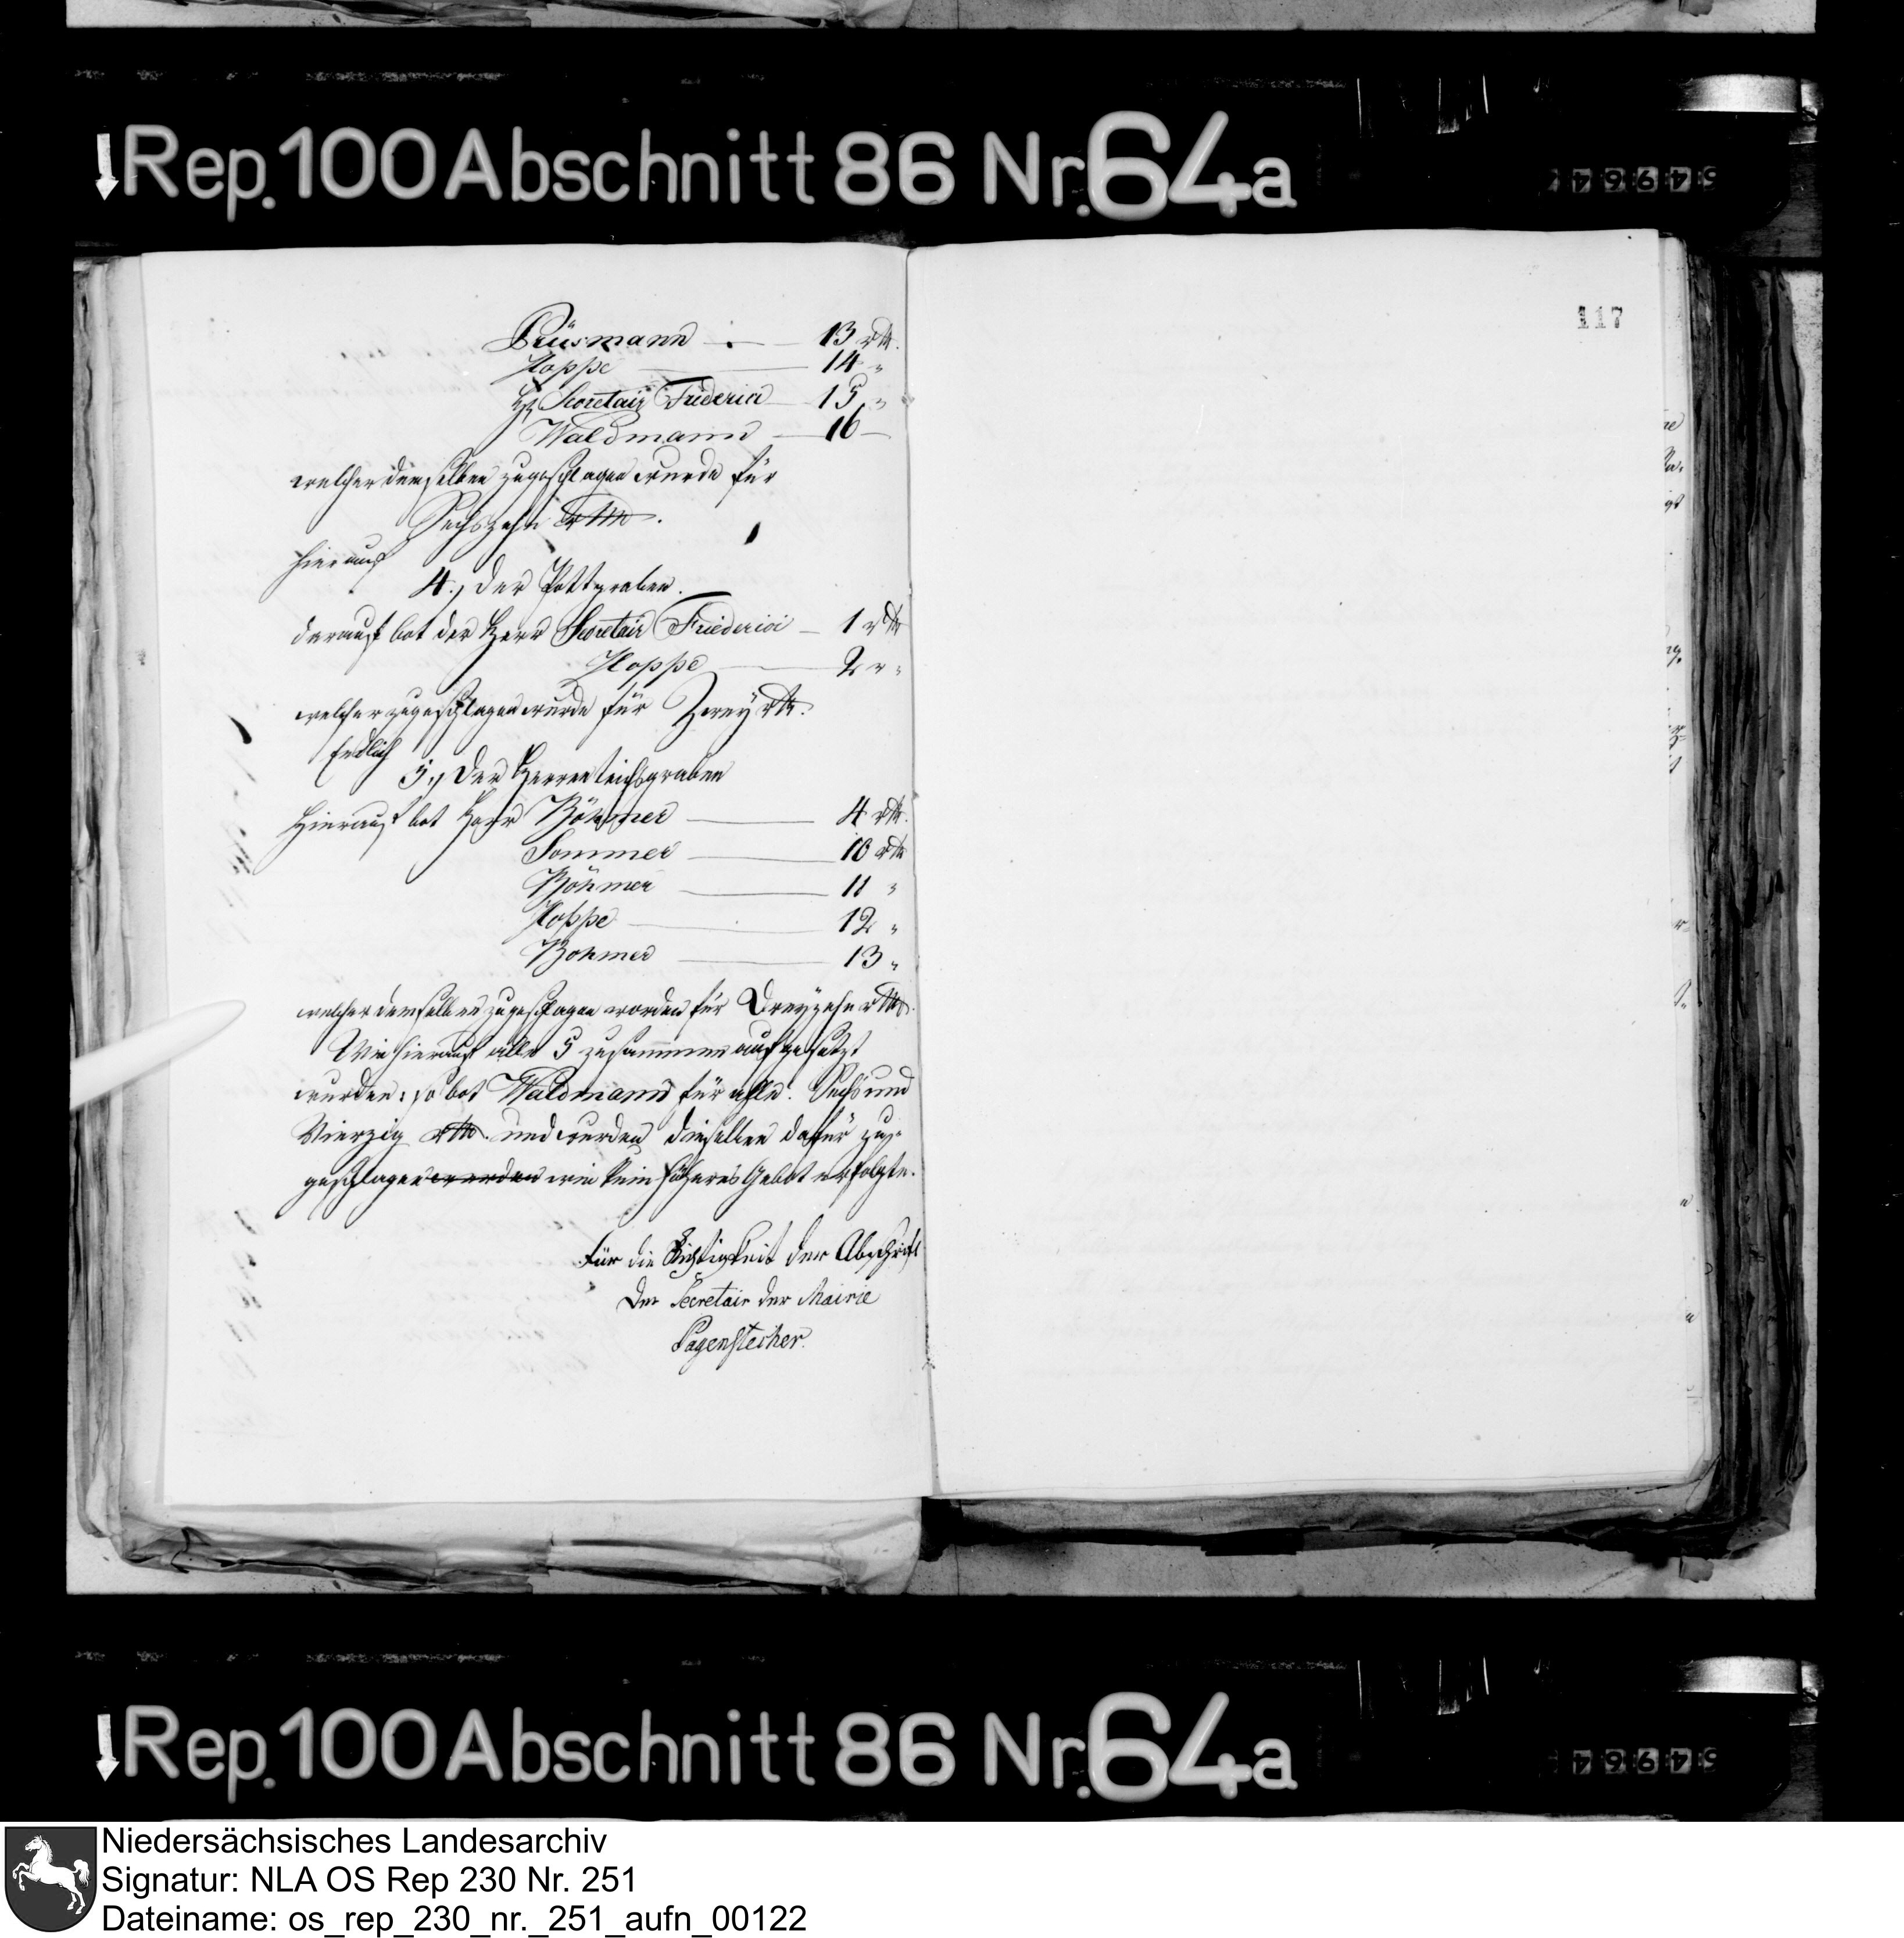 Rep. 100 Abschnitt 86 Nr. 64a
Brüsmann — 13 rtl.
Hoppe — 14 "
H. Secretair Friderici — 15 "
Waldmann — 16 —
welcher demselben zugeschlagen wurde für
Sechszehn rtl.
hierauf
4., Der Pottgraben.
darauf bot der Herr Secretair Friederici — 1 rtl
Hoppe — 2 " "
welcher zugeschlagen wurde für Zwey rtl.
Endlich
5., Der Herrenteichsgraben
Hierauf bot Herr Böhmer — 4 rtl.
Sommer — 10 rtl
Böhmer — 11 "
Hoppe — 12 "
Bohmer — 13 "
welcher demselben zugeschlagen worden für Dreyzehn rtl.
Wie hierauf alle 5 zusammen aufgesetzt
wurden, so bot Waldmann für alle. Sechs und
Vierzig rtl. und wurden dieselben dafür zu-
geschlagen werden wie kein höheres Gebot erfolgte.
Für die Richtigkeit der Abschrift
Der Secretair der Mairie
Pagenstecher.
117
Rep. 100 Abschnitt 86 Nr. 64a
Niedersächsisches Landesarchiv
Signatur: NLA OS Rep 230 Nr. 251
Dateiname: os_rep_230_nr._251_aufn_00122